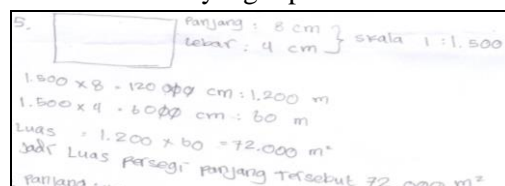 5. Panjang : 8 cm
Lebar : 4 cm } skala 1 : 1.500
1.500 x 8 = 120 000 cm : 1.200 m
1.500 x 4 = 6000 cm : 60 m
Luas = 1.200 x 60 = 72.000 m²
Jadi Luas persegi panjang tersebut 72.000 m²
panjang